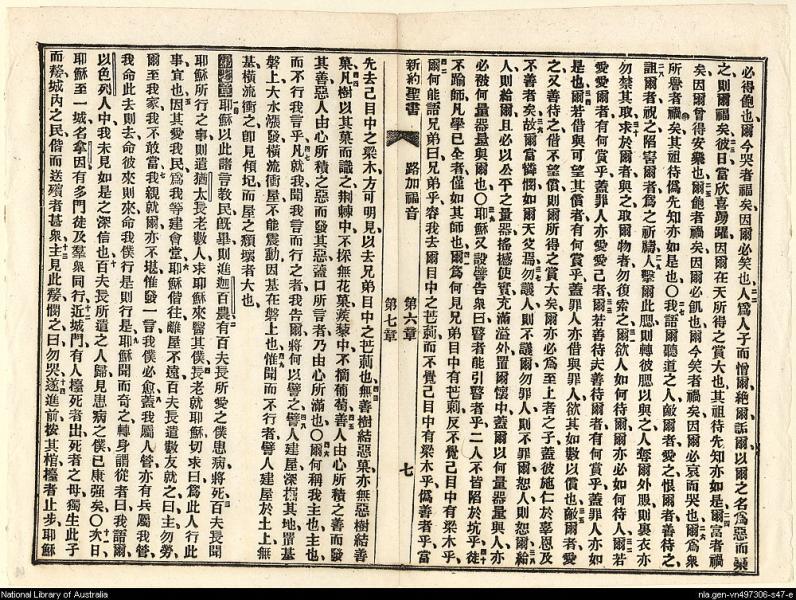 必得飽也爾今哭者福矣因爾必笑也人爲人子而憎爾絕爾詬爾以爾之名爲惡而棄
之則爾福矣彼日當欣喜踴躍因爾在天所得之賞大也其祖待先知亦如是爾富者禍
矣因爾曾得安樂也爾飽者禍矣因爾必飢也爾今笑者禍矣因爾必哀而哭也爾爲衆
所譽者禍矣其祖待僞先知亦如是也〇我語爾聽道之人敵爾者愛之恨爾者善待之
詛爾者祝之陷害爾者爲之祈禱人擊爾此腮則轉彼腮以與之人奪爾外服則裏衣亦
勿禁其取求於爾者與之取爾物者勿復索之爾欲人如何待爾爾亦必如何待人爾若
愛愛爾者有何賞乎蓋罪人亦愛愛己者爾若善待夫善待爾者有何賞乎蓋罪人亦如
是也爾若借與可望其償者有何賞乎蓋罪人亦借與罪人欲其如數以償也敵爾者愛
之又善待之借不望償則爾所得之賞大矣爾亦必爲至上者之子蓋彼施仁於辜恩及
不善者矣故爾當憐憫如爾天父焉勿議人則不議爾勿罪人則不罪爾恕人則恕爾給
人則給爾且必以公平之量器搖撼使實充滿溢外置爾懷中蓋爾以何量器量與人亦
必被何量器量與爾也〇耶穌又設譬告衆曰瞽者能引瞽者乎二人不皆陷於坑乎徒
不踰師凡學已全者僅如其師也爾爲何見兄弟目中有芒莿反不覺己目中有梁木乎
爾何能語兄弟曰兄弟乎容我去爾目中之芒莿而不覺己目中有梁木乎僞善者乎當
新約聖書 路加福音 第六章 第七章 七
先去己目中之梁木方可明見以去兄弟目中之芒莿也無善樹結惡菓亦無惡樹結善
菓凡樹以其菓而識之荆棘中不採無花菓蒺藜中不摘葡萄善人由心所積之善而發
其善惡人由心所積之惡而發其惡蓋口所言者乃由心所滿也〇爾何稱我主也主也
而不行我言乎凡就我聞我言而行之者我告爾將何以譬之譬人建屋深掘其地置基
磐上大水漲發橫流衝屋不能震動因基在磐上也惟聞而不行者譬人建屋於土上無
基橫流衝之卽見傾圮而屋之頹壞者大也
第七章耶穌以此諸言敎民旣畢則進迦百農有百夫長所愛之僕患病將死百夫長聞
耶穌所行之事則遣猶太長老數人求耶穌來醫其僕長老就耶穌切求曰爲此人行此
事宜也因其愛我民爲我等建會堂耶穌偕往離屋不遠百夫長遣數友就之曰主勿勞
爾至我家我不敢當故我不敢親就爾亦不堪惟發一言我僕必愈蓋我屬人管亦有兵屬我管
我命此去則去命彼來則來命我僕行是則行是耶穌聞而奇之轉身謂從者曰我語爾
以色列人中我未見如是之深信也百夫長所遣之人歸見患病之僕已康强矣〇次日
耶穌至一城名拿因有多門徒及羣衆同行近城門有人檯死者出死者之母獨生此子
而嫠城內之民偕而送殯者甚衆主見此嫠憫之曰勿哭遂進前按其棺檯者止步耶穌
National Library of Australia
nla.gen-vn497306-s47-e